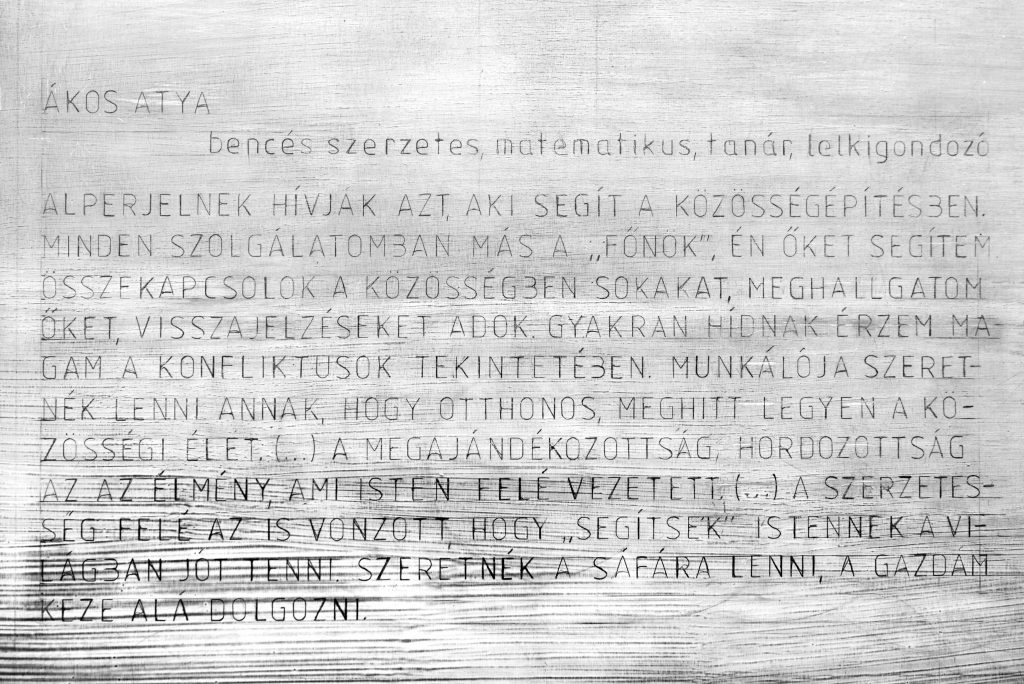 ÁKOS ATYA
bencés szerzetes, matematikus, tanár, lelkigondozó
ALPERJELNEK HÍVJÁK AZT, AKI SEGÍT A KÖZÖSSÉGÉPÍTÉSBEN.
MINDEN SZOLGÁLATOMBAN MÁS A „FŐNÖK”, ÉN ŐKET SEGÍTEM.
ÖSSZEKAPCSOLOK A KÖZÖSSÉGBEN SOKAKAT, MEGHALLGATOM
ŐKET, VISSZAJELZÉSEKET ADOK. GYAKRAN HÍDNAK ÉRZEM MA-
GAM A KONFLIKTUSOK TEKINTETÉBEN. MUNKÁLÓJA SZERET-
NÉK LENNI ANNAK, HOGY OTTHONOS, MEGHITT LEGYEN A KÖ-
ZÖSSÉGI ÉLET. (...) A MEGAJÁNDÉKOZOTTSÁG, HORDOZOTTSÁG
AZ AZ ÉLMÉNY, AMI ISTEN FELÉ VEZETETT. (...) A SZERZETES-
SÉG FELÉ AZ IS VONZOTT, HOGY „SEGÍTSEK” ISTENNEK A VI-
LÁGBAN JÓT TENNI. SZERETNÉK A SÁFÁRA LENNI, A GAZDÁM
KEZE ALÁ DOLGOZNI.